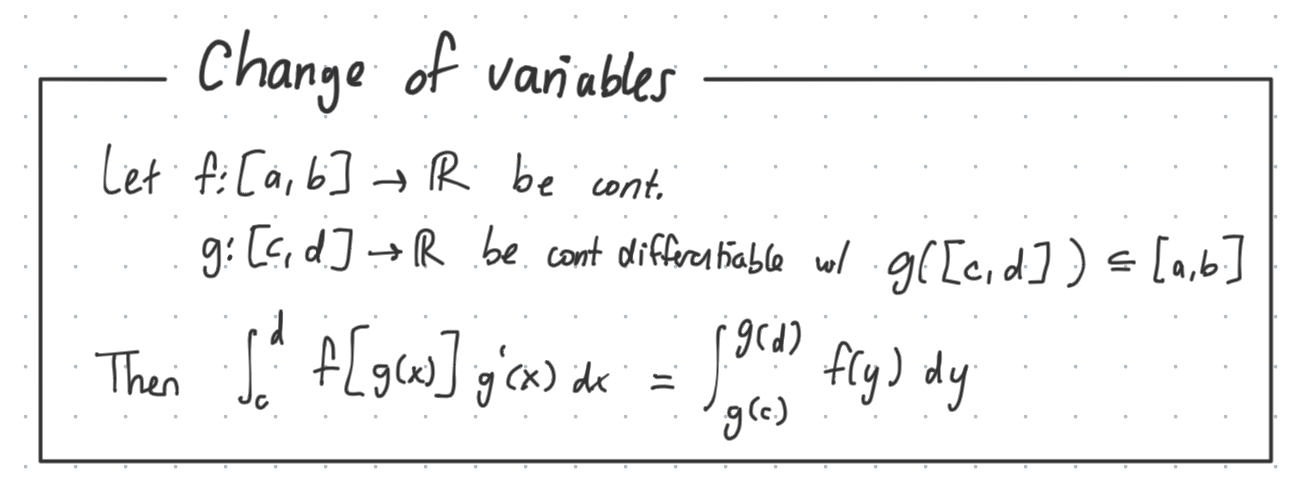 Change of variables
Let f: [a, b] → ℝ be cont.
g: [c, d] → ℝ be cont differentiable w/ g([c, d]) ⊆ [a, b]
Then ∫_c^d f[g(x)] g'(x) dx = ∫_{g(c)}^{g(d)} f(y) dy